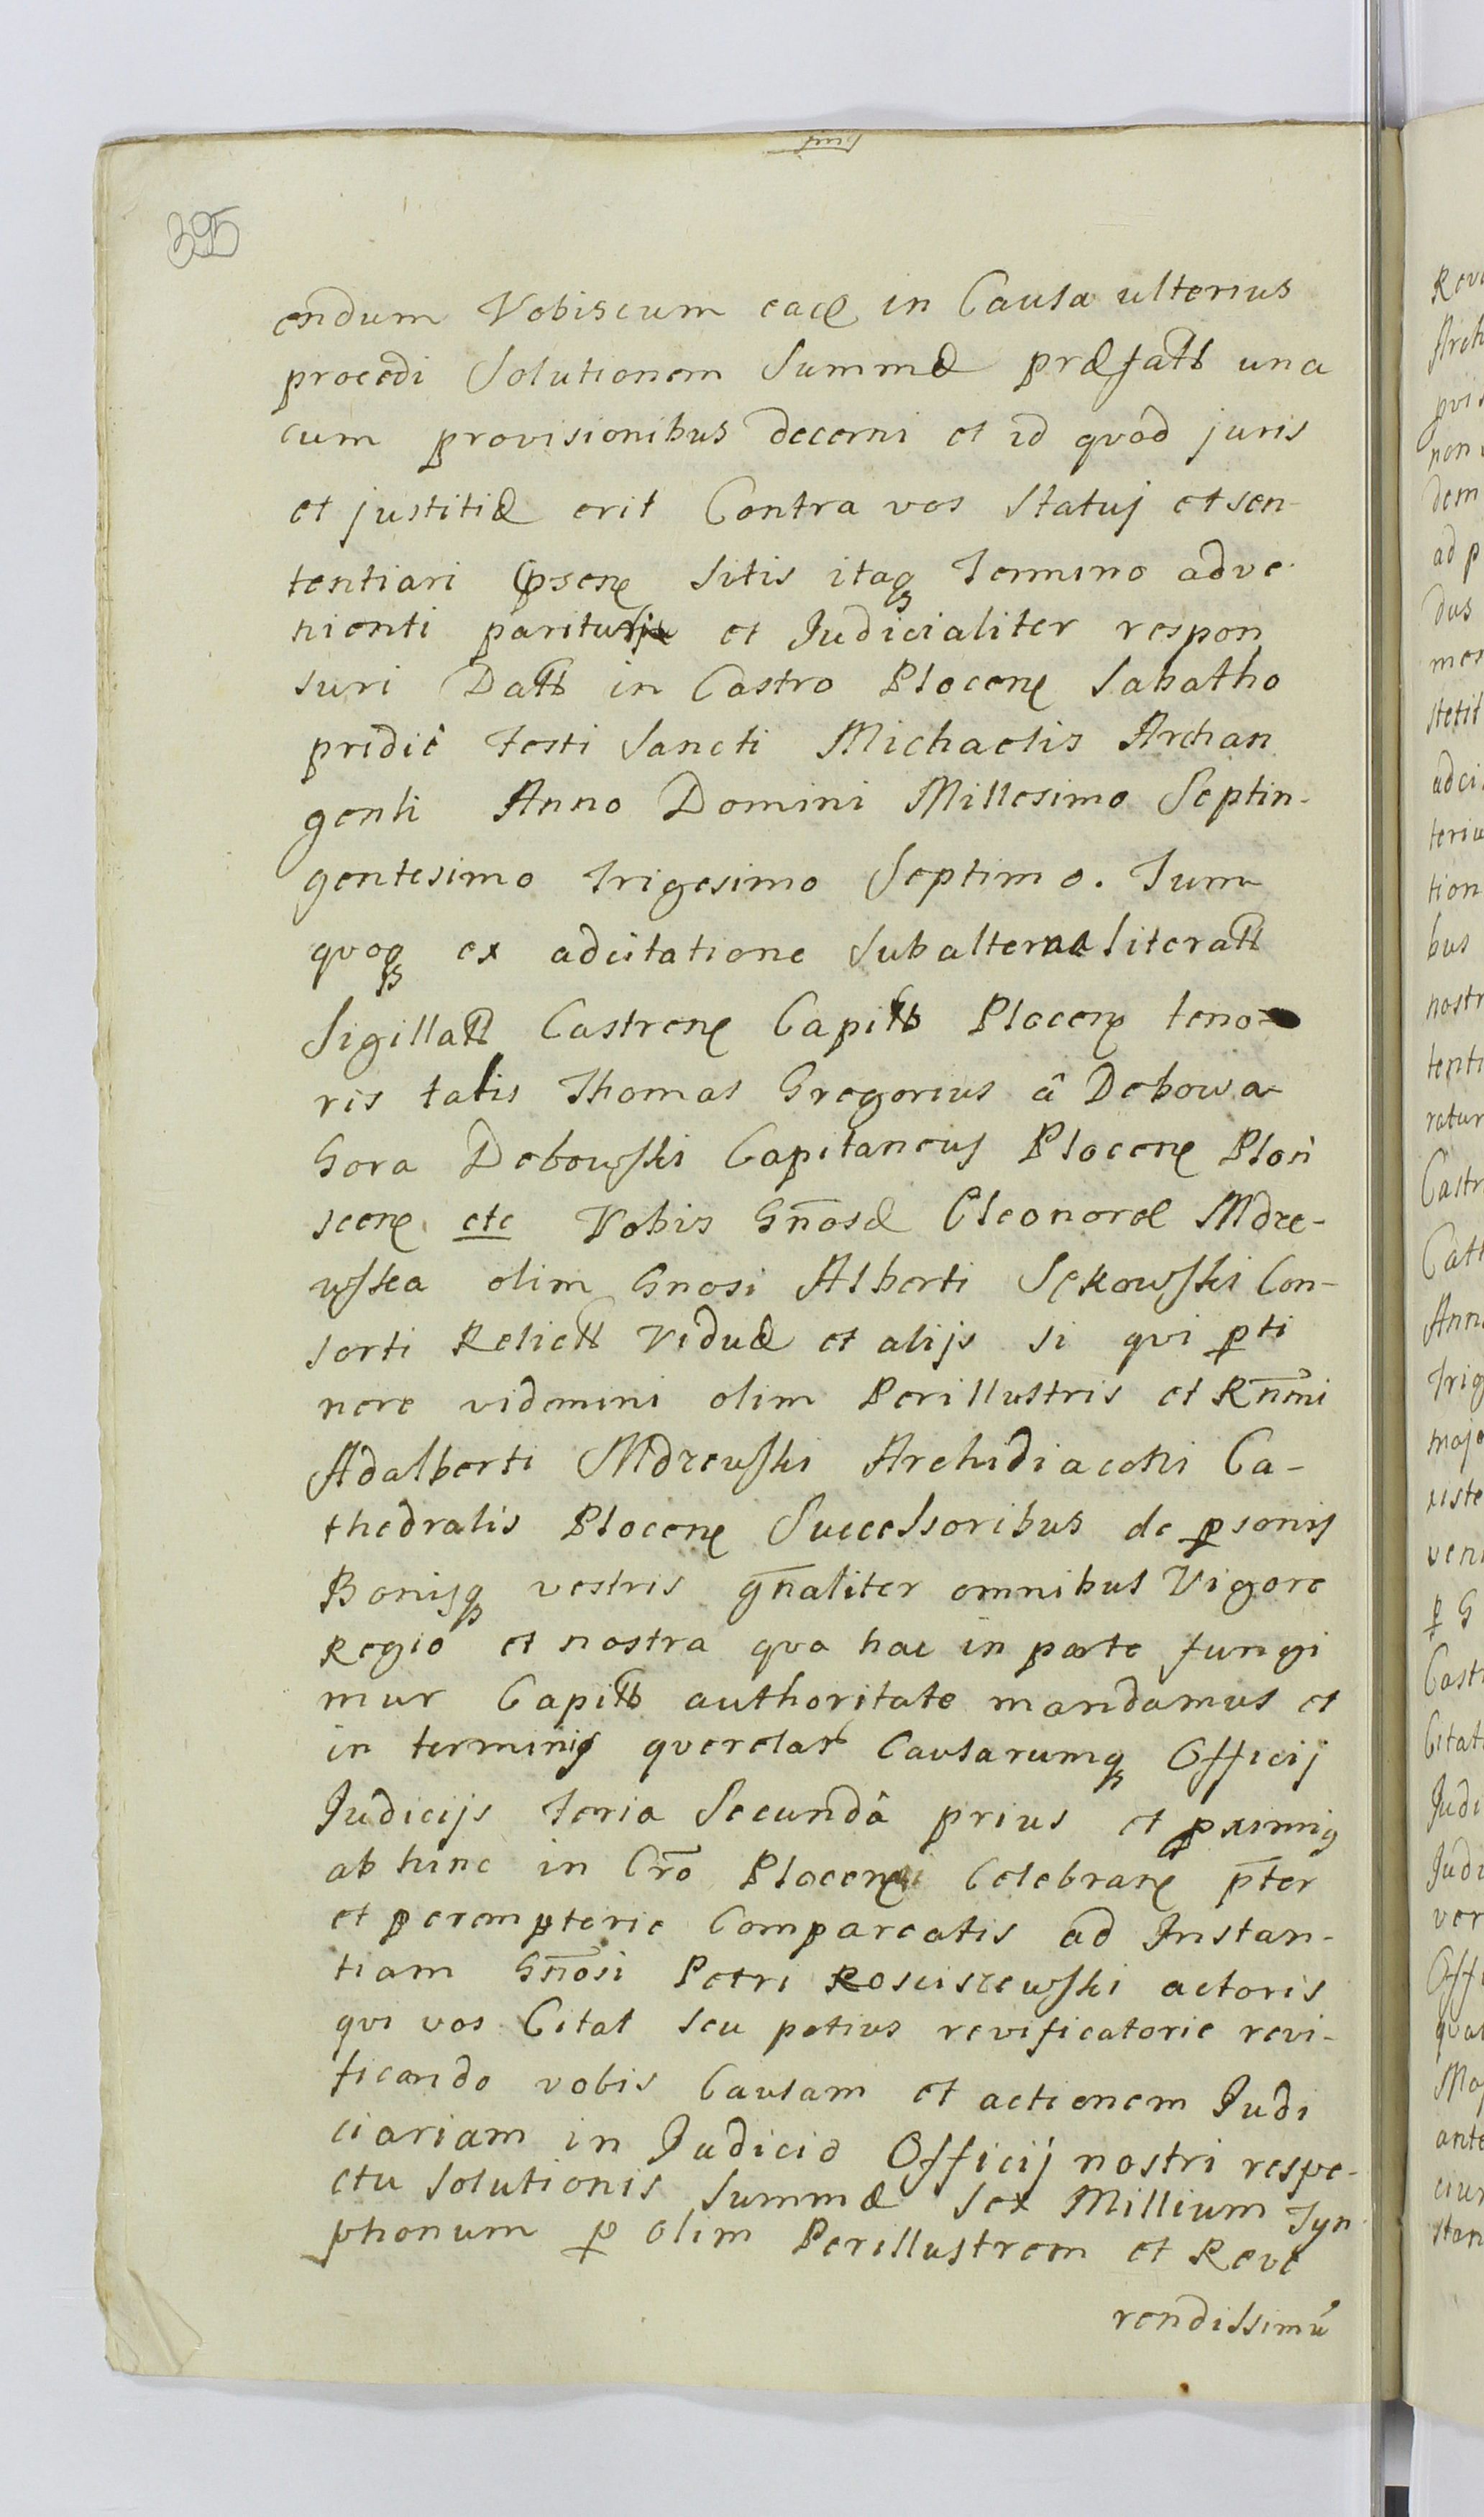 395
endum Vobiscum eaqȝ in Causa ulterius
procedi Solutionem Summæ præfatt una
cum provisionibus decerni et id quod juris
et justitiæ erit Contra vos Statuj et sen-
tentiari sitis itaqȝ Termino adve-
nienti parituri et Judicialiter respon
suri Datt in Castro Plocenȝ Sabatho
pridie Festi Sancti Michaelis Archan
geli Anno Domini Millesimo Septin-
gentesimo Trigesimo Septimo. Tum
quoqȝ ex adcitatione Subalterna literatt
Sigillatt Castrenȝ Capittt Plocenȝ teno-
ris talis Thomas Gregorius â Debowa
Gora Debowski Capitaneus Plocenȝ Plon
scenȝ etc Vobis Gnosæ Eleonoræ Mdze-
wska olim Gnosi Alberti Sękowski Con-
sorti Relictt Viduæ et alijs si qui pti
nere videmini olim Perillustris et Rnmi
Adalberti Mdzewski Archidiaconi Ca-
thedralis Plocenȝ Successoribus de psonis
Bonisqȝ vestris gnaliter omnibus Vigore
Regio et nostra qua hac in parte fungi
mur Capittt authoritate mandamus et
in terminis querelar Causarumqȝ Officij
Judicijs Feria Secundâ prius et pximis
ab hinc in Cro Plocenȝ Celebranȝ pter
et peremptorie Compareatis ad Instan-
tiam Gnosi Petri Rosciszewski actoris
qui vos Citat seu potius revificatorie revi-
ficando vobis Causam et actionem Judi
ciariam in Judicio Officij nostri respe-
ctu Solutionis Summæ Sex Millium Tyn-
phonum p olim Perillustrem et Reve
rendissimû